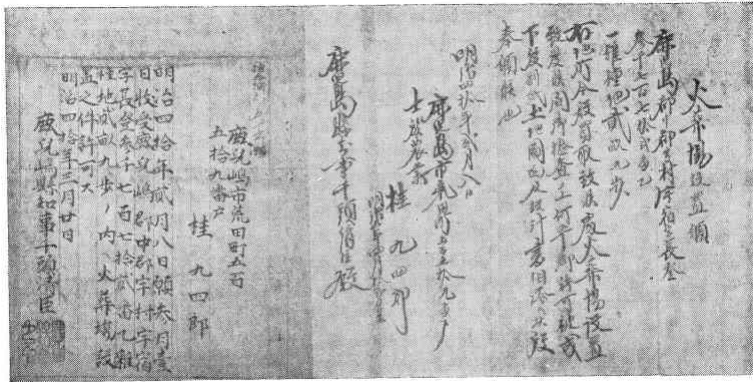 火葬場設置願
鹿児島郡中郡宇村字宿之長参
参千七百七拾弐番乙
一雑種地弐畝九歩
右地所今般買取致候処火葬場設置
致度候間御検査之上何卒御許可被成
下度別紙土地図面及設計書相添此段
奉願候也
明治四拾年弐月八日
鹿児島市荒田町五百五拾九番戸
士族農業
桂九四郎
鹿児島県知事千頭清臣殿
鹿児嶋市荒田町五百
五拾九番戸
桂九四郎
明治四拾年貳月八日願参月壹
日收受鹿兒嶋郡中郡宇村字宿
字長参参千七百七拾貳番乙雜
種地貳畝九歩ノ内ヘ火葬場設
置之件許可ス
明治四拾年三月廿日
鹿兒嶋縣知事千頭清臣